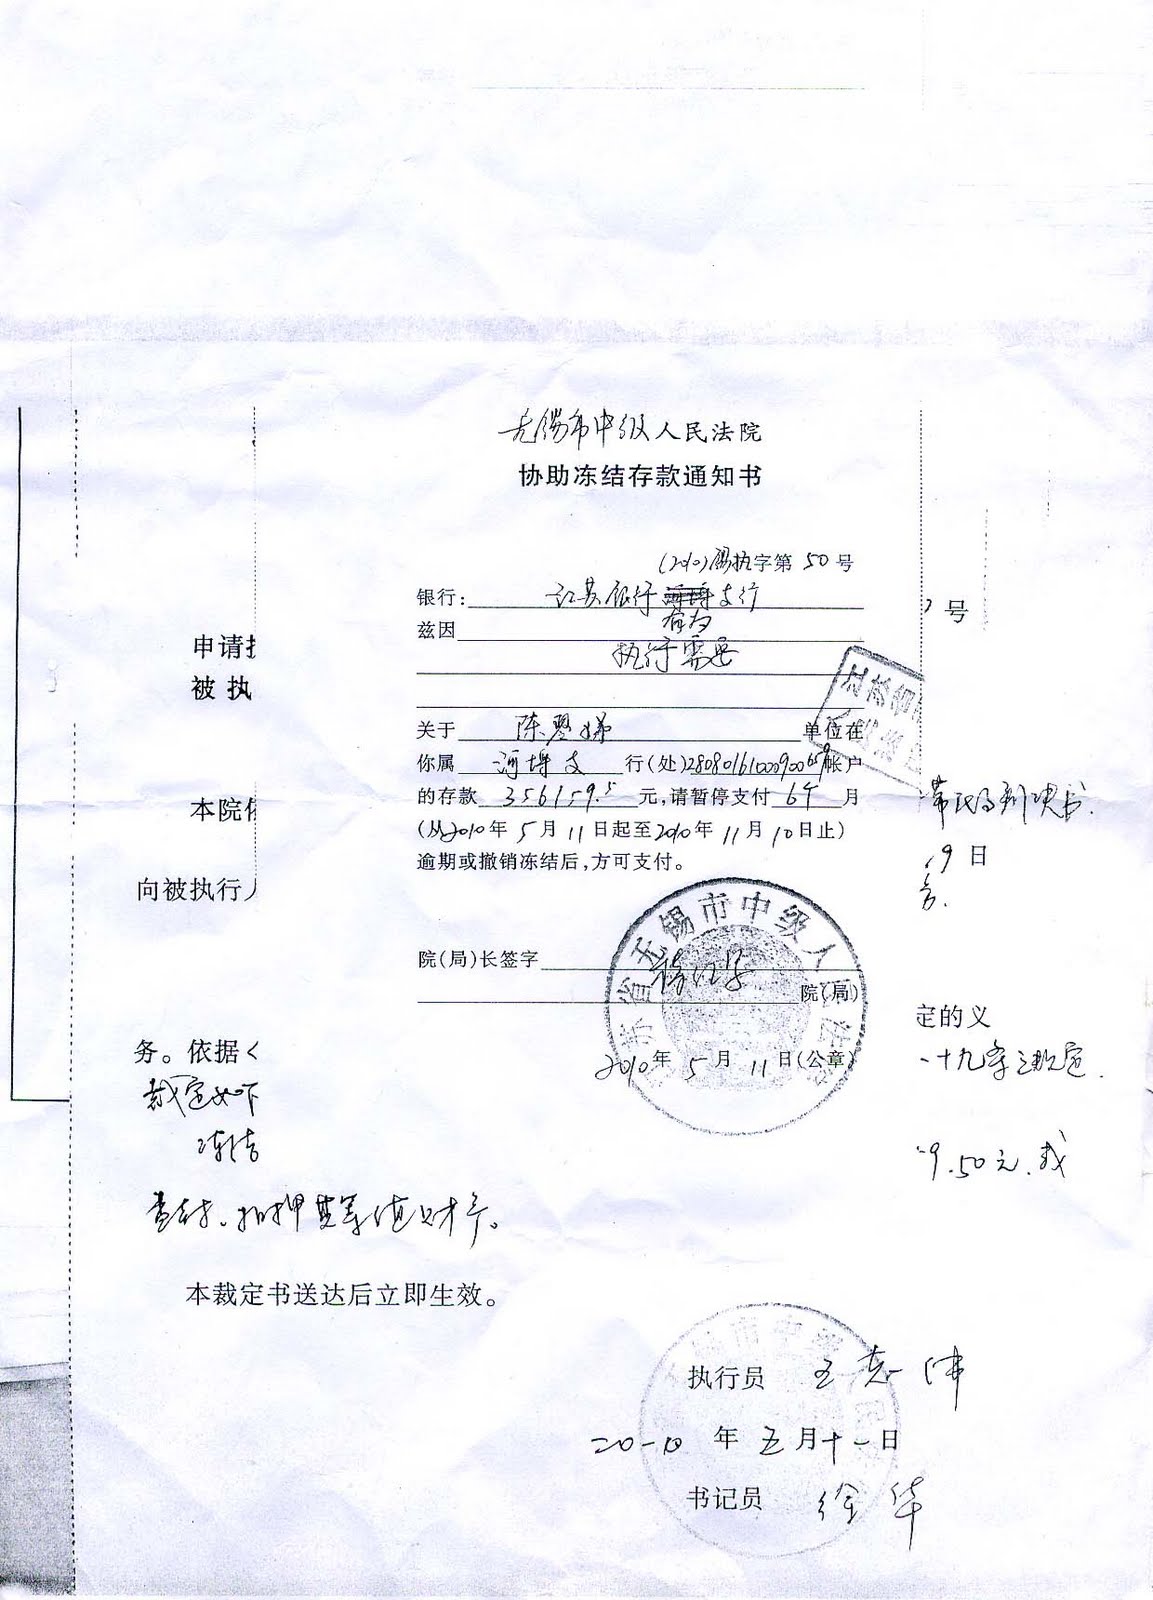 无锡市中级人民法院
协助冻结存款通知书
(2010)锡执字第 50 号
银行: 江苏银行 支行
兹因 有为
执行需要
关于 陈琴娣 单位在
你属 河埒支 行(处)28080161000900659帐户
的存款 356159.5 元,请暂停支付 6个 月
(从2010年 5月 11日起至2010年 11月 10日止)
逾期或撤销冻结后,方可支付。
院(局)长签字
院(局)
2010年 5月 11日(公章)
苏省无锡市中级人
号
申请执
被 执
本院依
民事判决书.
9 日
向被执行人
定的义
务。依据<
十九条之规定.
裁定如下
冻结
9.50元.或
查封、扣押其等值财产。
本裁定书送达后立即生效。
执行员 王志伟
二0一0 年 五月十一日
书记员 徐华